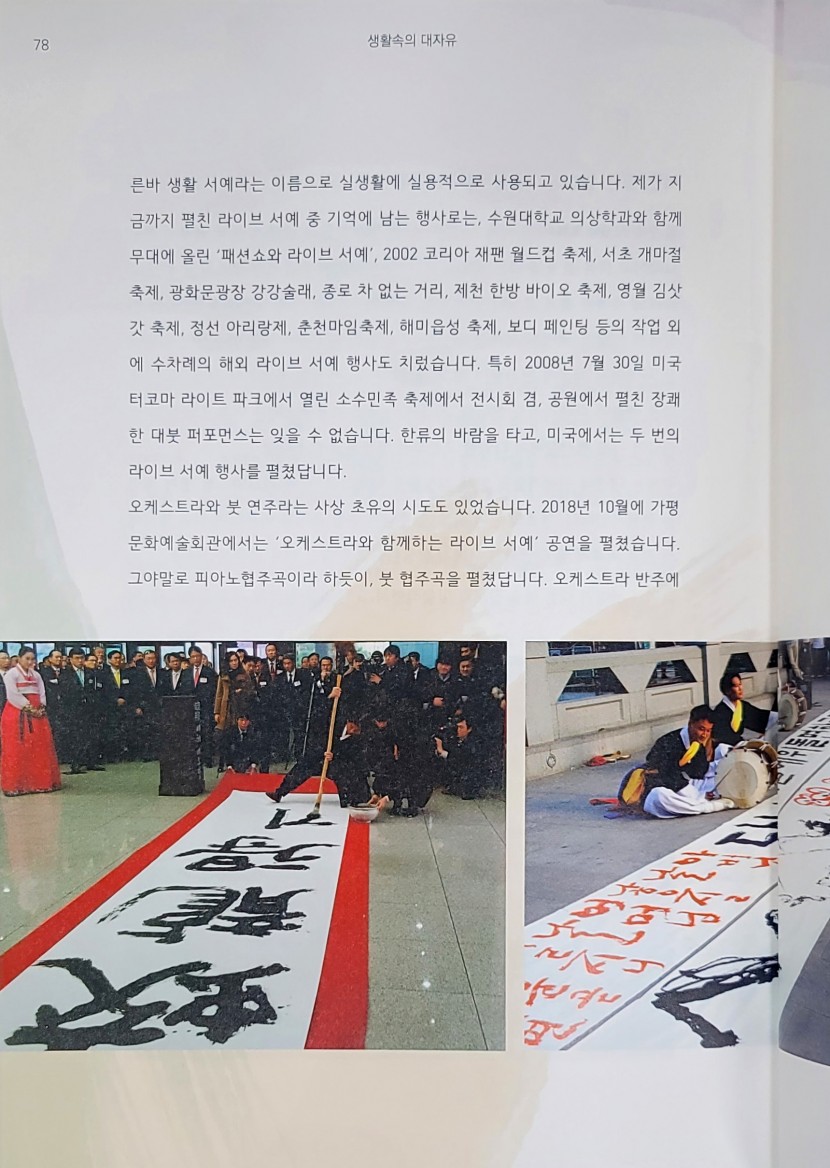 78
생활속의 대자유
른바 생활 서예라는 이름으로 실생활에 실용적으로 사용되고 있습니다. 제가 지
금까지 펼친 라이브 서예 중 기억에 남는 행사로는, 수원대학교 의상학과와 함께
무대에 올린 ‘패션쇼와 라이브 서예’, 2002 코리아 재팬 월드컵 축제, 서초 개마절
축제, 광화문광장 강강술래, 종로 차 없는 거리, 제천 한방 바이오 축제, 영월 김삿
갓 축제, 정선 아리랑제, 춘천마임축제, 해미읍성 축제, 보디 페인팅 등의 작업 외
에 수차례의 해외 라이브 서예 행사도 치렀습니다. 특히 2008년 7월 30일 미국
터코마 라이트 파크에서 열린 소수민족 축제에서 전시회 겸, 공원에서 펼친 장쾌
한 대붓 퍼포먼스는 잊을 수 없습니다. 한류의 바람을 타고, 미국에서는 두 번의
라이브 서예 행사를 펼쳤답니다.
오케스트라와 붓 연주라는 사상 초유의 시도도 있었습니다. 2018년 10월에 가평
문화예술회관에서는 ‘오케스트라와 함께하는 라이브 서예’ 공연을 펼쳤습니다.
그야말로 피아노협주곡이라 하듯이, 붓 협주곡을 펼쳤답니다. 오케스트라 반주에